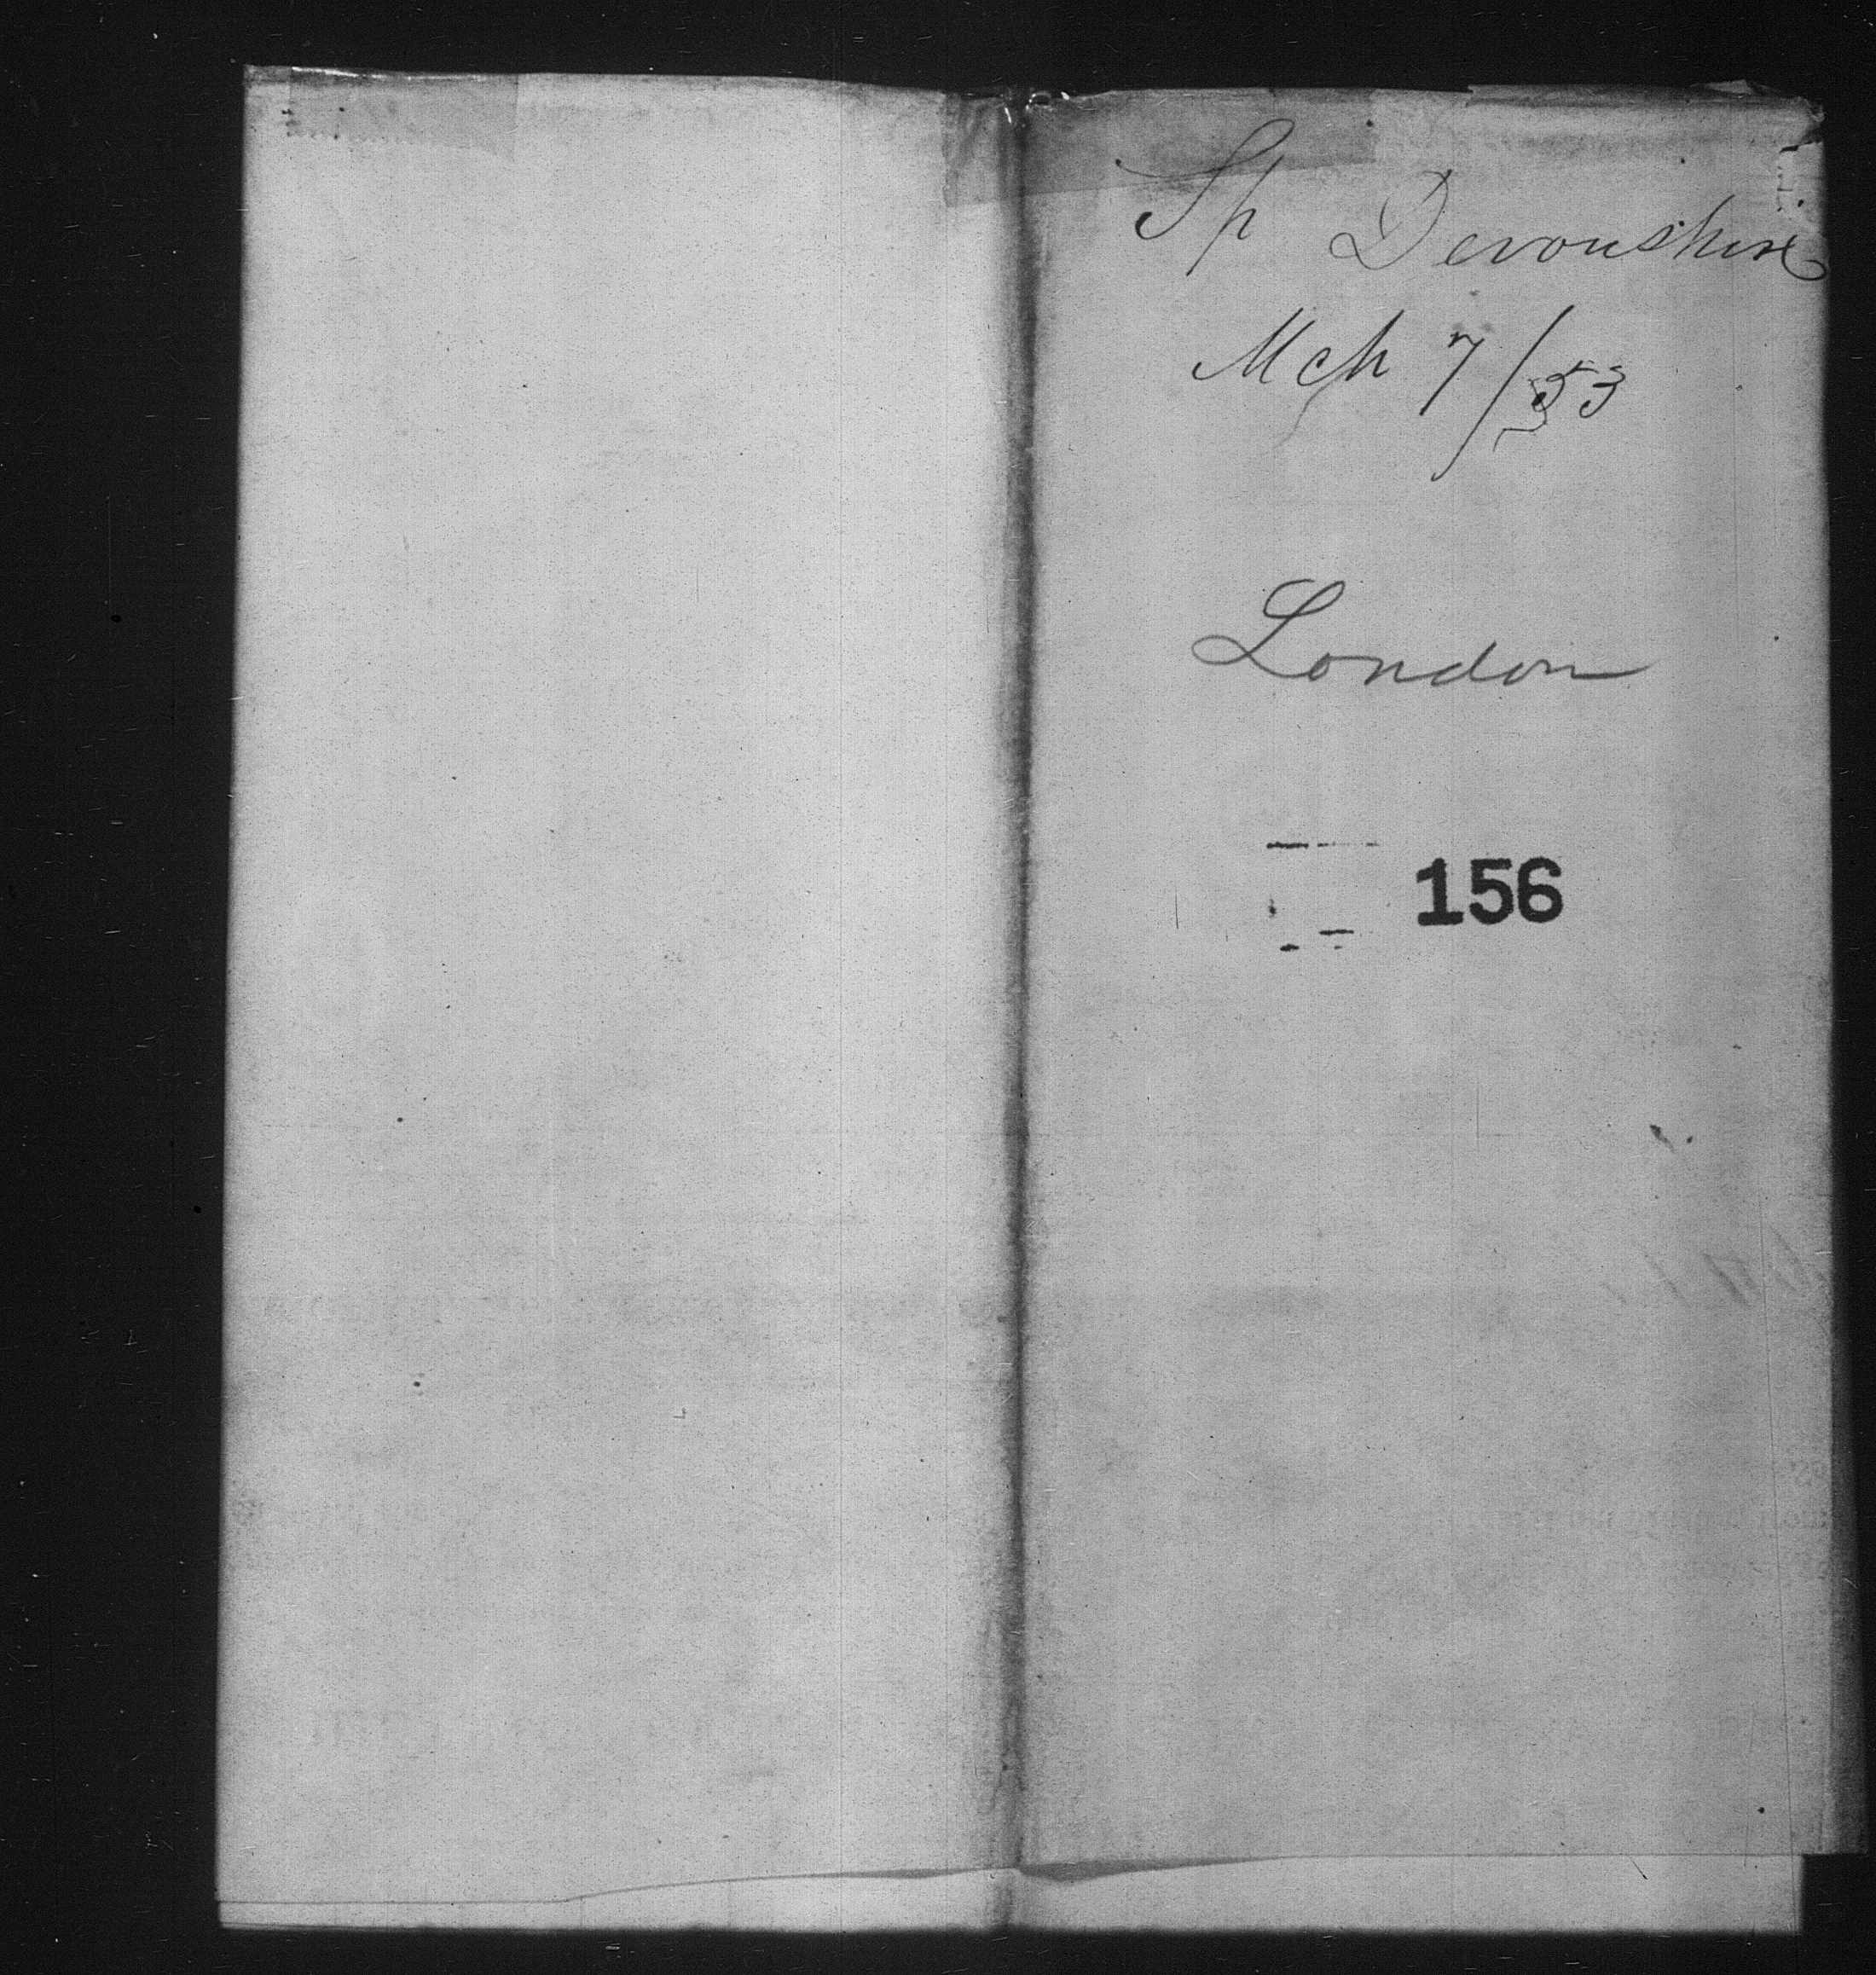 Sh Devonshire
Mch 7/53
London
156